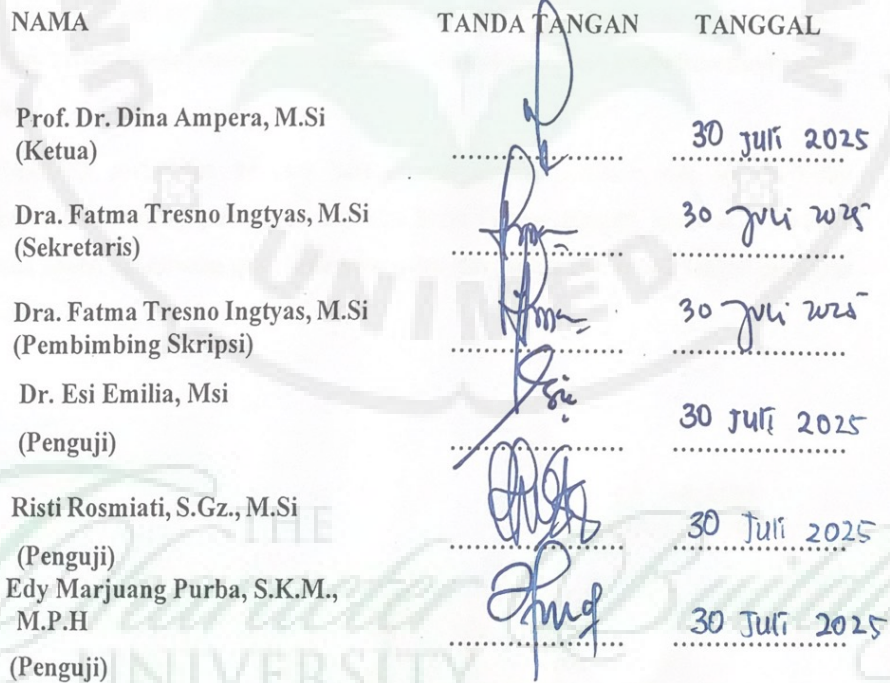 NAMA TANDA TANGAN TANGGAL
Prof. Dr. Dina Ampera, M.Si
(Ketua) .................... 30 Juli 2025
Dra. Fatma Tresno Ingtyas, M.Si
(Sekretaris) .................... 30 Juli 2025
UNIMED
Dra. Fatma Tresno Ingtyas, M.Si
(Pembimbing Skripsi) .................... 30 Juli 2025
Dr. Esi Emilia, Msi
(Penguji) .................... 30 Juli 2025
Risti Rosmiati, S.Gz., M.Si
THE
(Penguji) .................... 30 Juli 2025
Character Building
Edy Marjuang Purba, S.K.M.,
M.P.H .................... 30 Juli 2025
(Penguji)
UNIVERSITY